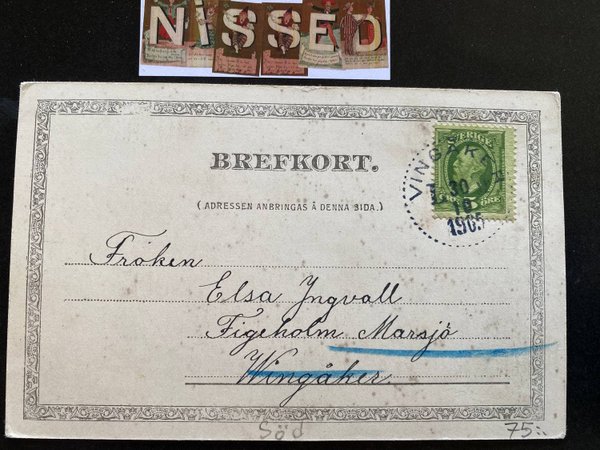 NISSED
BREFKORT.
(ADRESSEN ANBRINGAS Å DENNA SIDA.)
SVERIGE
ÖRE
VINGÅKER
30
10
1905
Fröken
Elsa Ingvall
Figeholm Marsjö
Wingåker
Söd
75:-